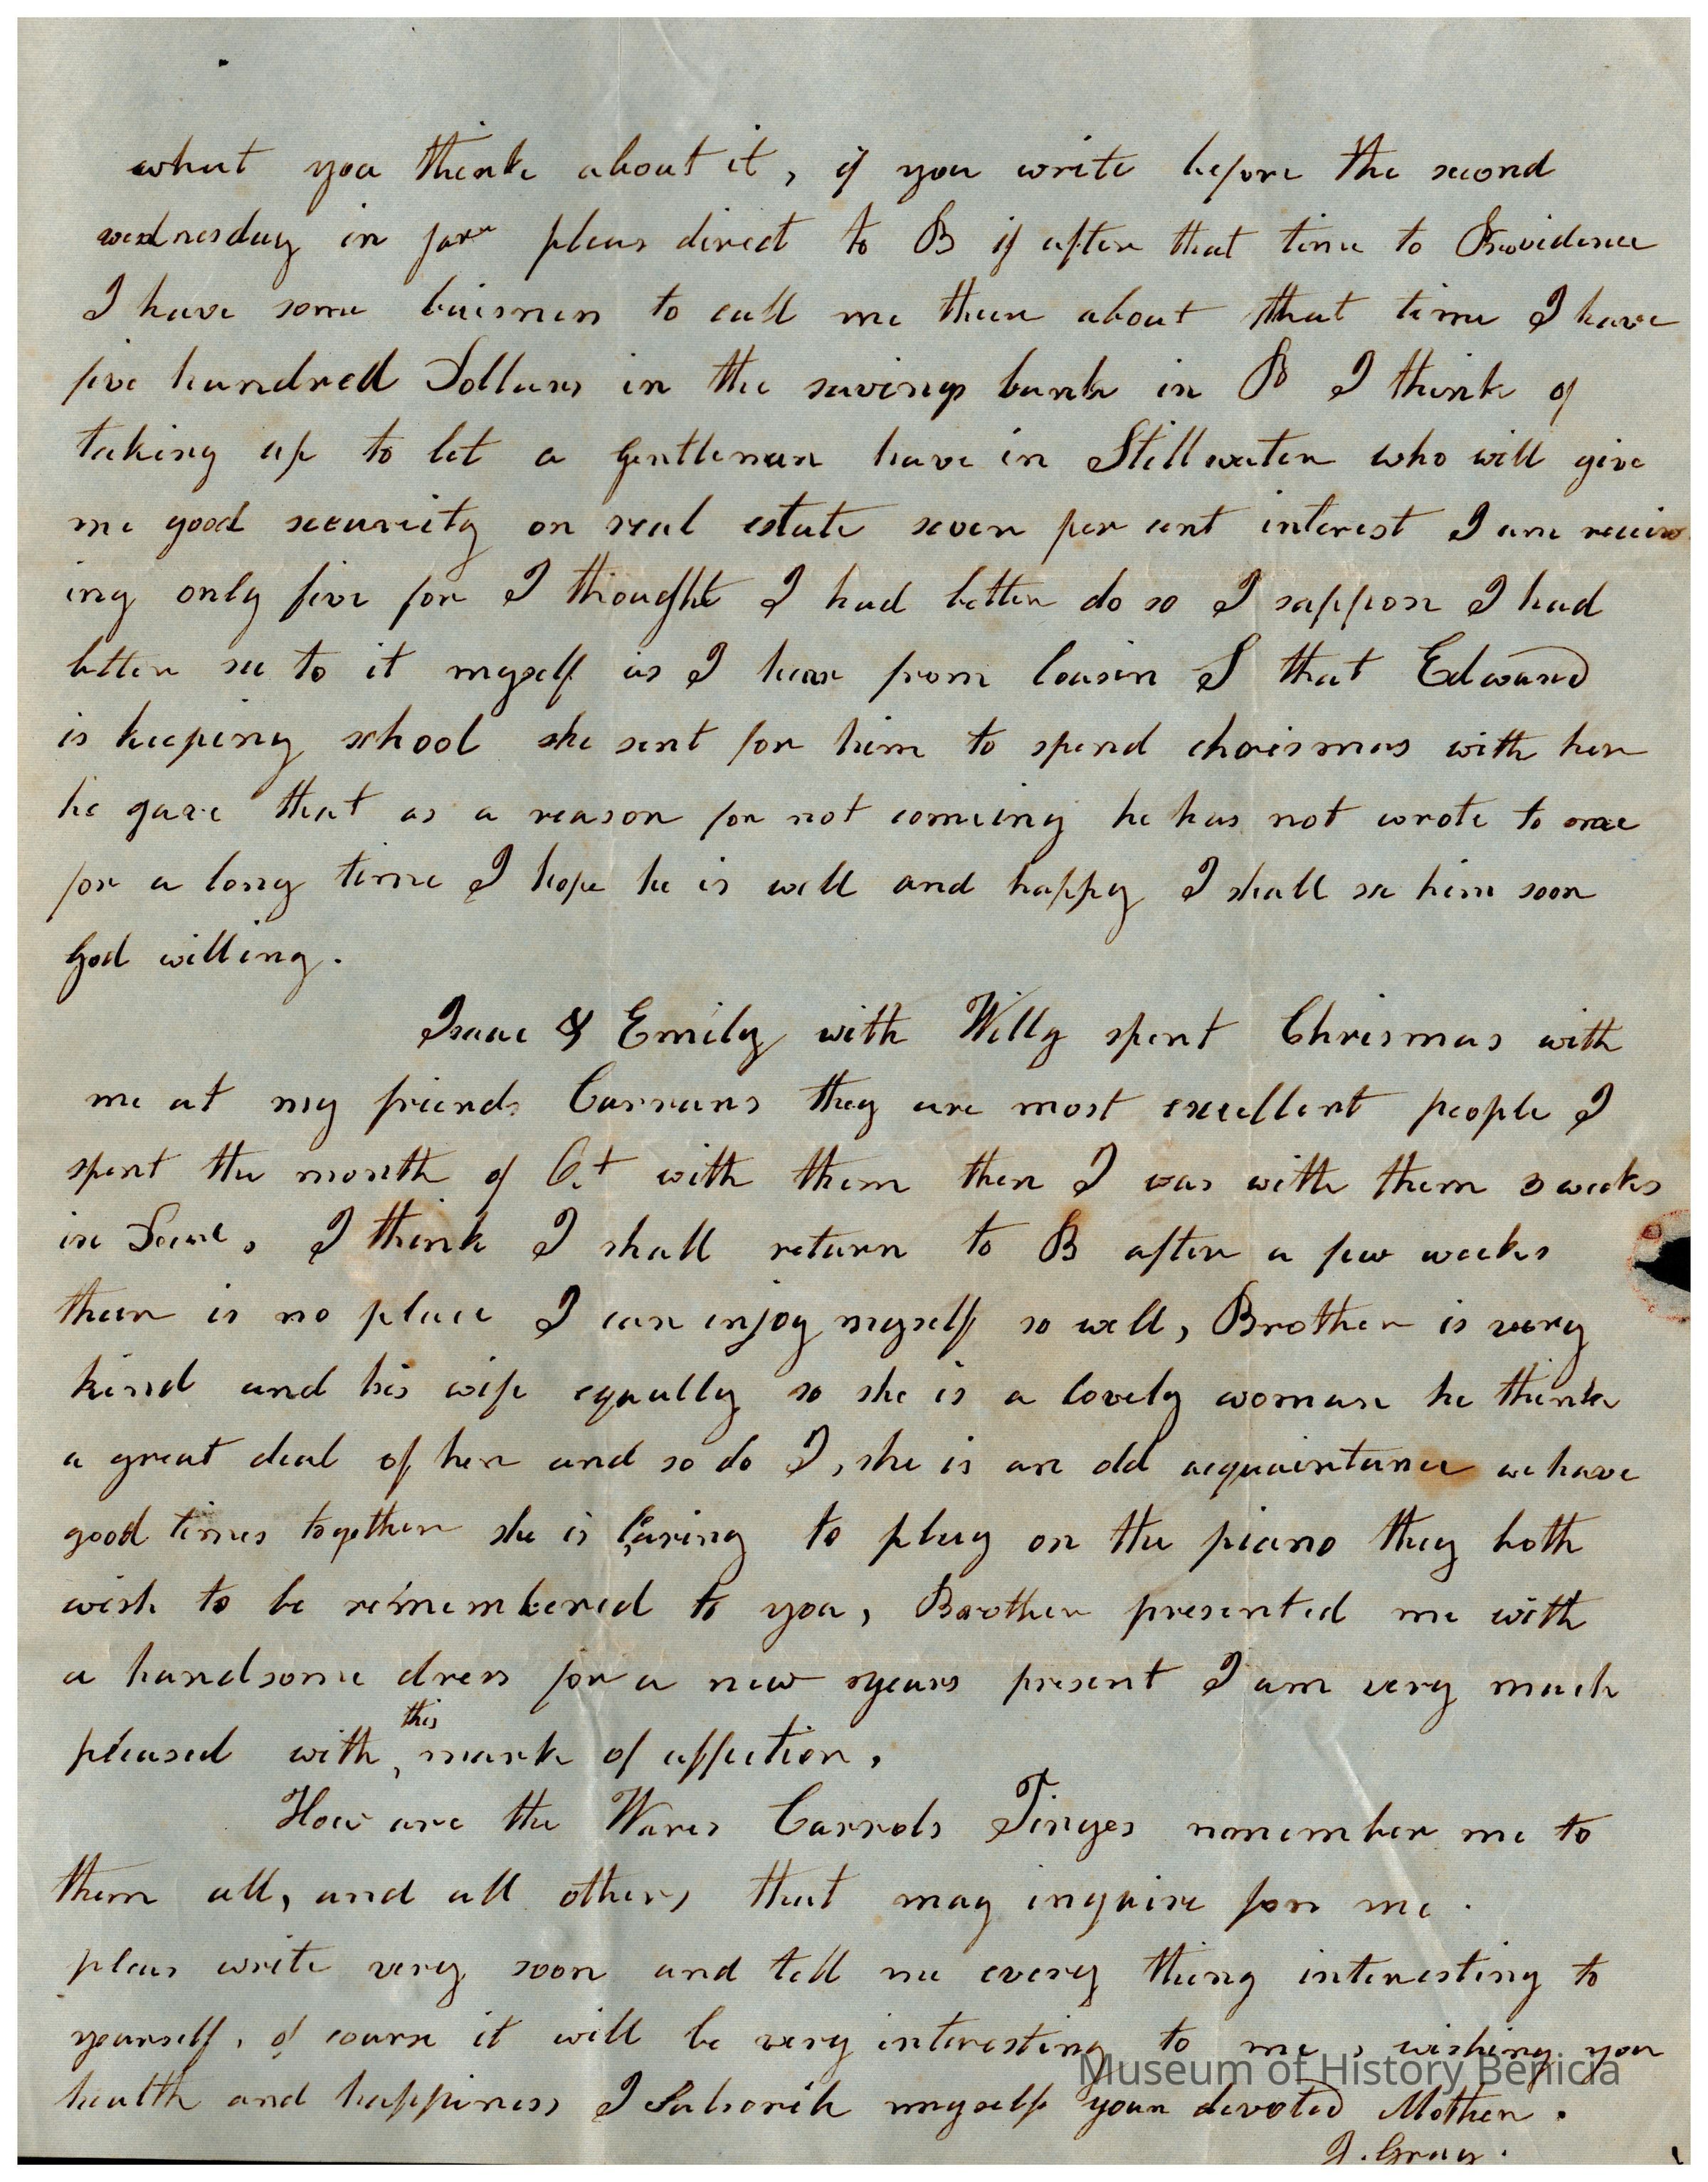 what you think about it, if you write before the second
wednesday in Jany pleas direct to B if after that time to Providence
I have some buisness to call me there about that time I have
five hundred Dollars in the savings bank in B I think of
taking up to let a gentleman have in Stillwater who will give
me good security on real estate seven per cent interest I am receiv
ing only five for I thought I had better do so I suppose I had
better see to it myself as I hear from Cousin S that Edward
is keeping school she sent for him to spend chrismas with her
he gave that as a reason for not comeing he has not wrote to me
for a long time I hope he is well and happy I shall see him soon
God willing.
Isaac & Emily with Willy spent Chrismas with
me at my friends Currans they are most excellent people I
spent the month of Oct with them then I was with them 3 weeks
in I think I shall return to B after a few weeks
there is no place I can injoy myself so well, Brother is very
kind and his wife equally so she is a lovely woman he thinks
a great deal of her and so do I, she is an old acquaintance we have
good times together she is larning to play on the piano they both
wish to be remembered to you, Brother presented me with
a handsome dress for a new years present I am very much
pleased with this mark of affection.
How are the Wares Carrols Tinges remember me to
them all, and all others that may inquire for me.
pleas write very soon and tell me every thing interesting to
yourself, of course it will be very interesting to me, wishing you
health and happiness I Subscrib myself your devoted Mother.
J. Gray.
Museum of History Benicia